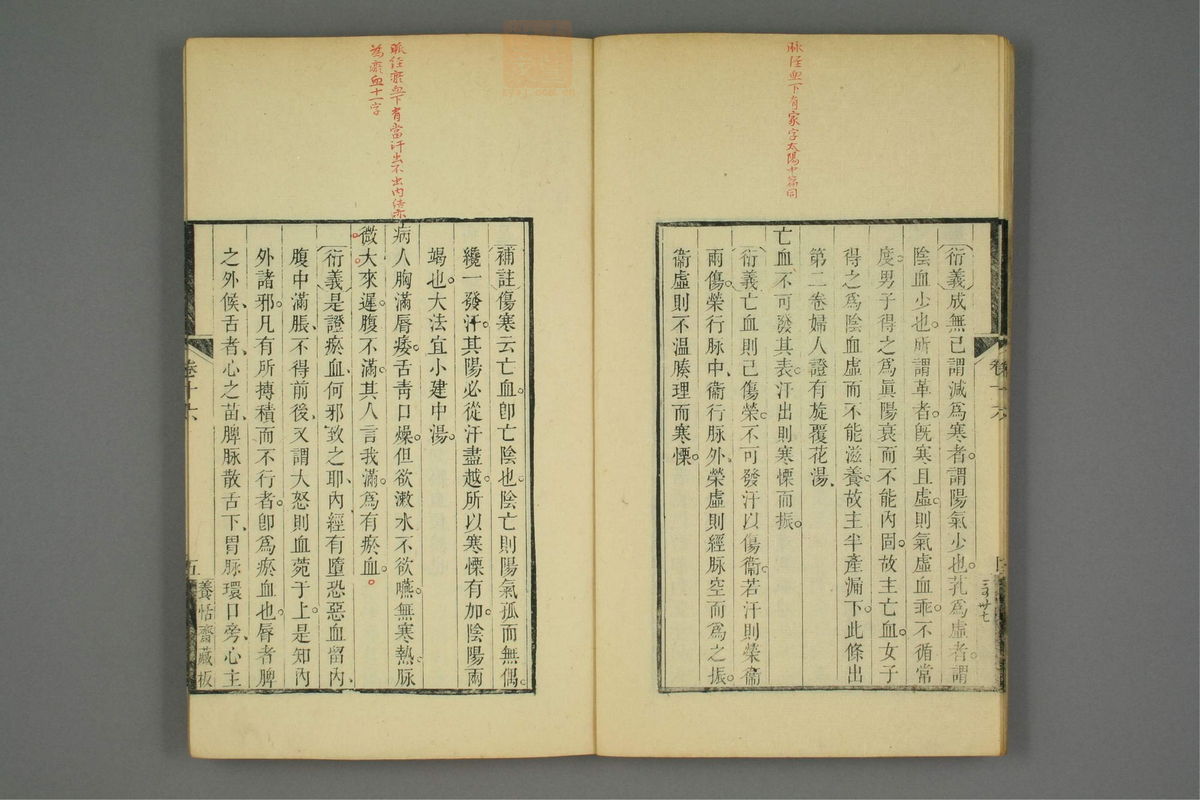 脉经血下有家字太陽中篇同
〔衍義〕成無己謂減爲寒者。謂陽氣少也。芤爲虛者。謂
陰血少也。所謂革者。旣寒且虛。則氣虛血乖。不循常
度。男子得之爲眞陽衰而不能內固。故主亡血。女子
得之爲陰血虛而不能滋養。故主半產漏下。此條出
第二卷婦人證有旋覆花湯、
亡血不可發其表。汗出則寒慄而振。
〔衍義〕亡血則已傷榮。不可發汗以傷衞。若汗則榮衞
兩傷。榮行脉中、衞行脉外、榮虛則經脉空而爲之振。
衞虛則不溫腠理而寒慄。
卷十六
脈经瘀血下有當汗出不出内结亦
为瘀血十一字
〔補註〕傷寒云亡血。卽亡陰也。陰亡則陽氣孤而無偶。
纔一發汗。其陽必從汗盡越。所以寒慄有加。陰陽兩
竭也。大法宜小建中湯。
病人胸滿脣痿。舌靑口燥。但欲漱水不欲嚥。無寒熱。脉
微大來遲。腹不滿。其人言我滿。爲有瘀血。
〔衍義〕是證瘀血、何邪致之耶、內經有墮恐惡血留內、
腹中滿脹、不得前後、又謂大怒則血菀于上。是知內
外諸邪。凡有所搏積而不行者。卽爲瘀血也。脣者脾
之外候、舌者、心之苗、脾脉散舌下、胃脉環口旁、心主
卷十六
五
養恬齋藏板